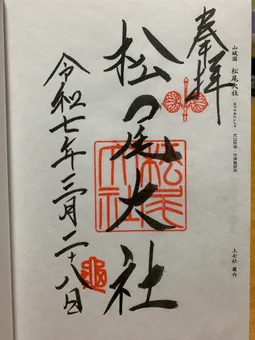 奉拝
山城国 松尾大社
上七社 畿内
松尾大社
松尾大社
令和七年三月二十八日